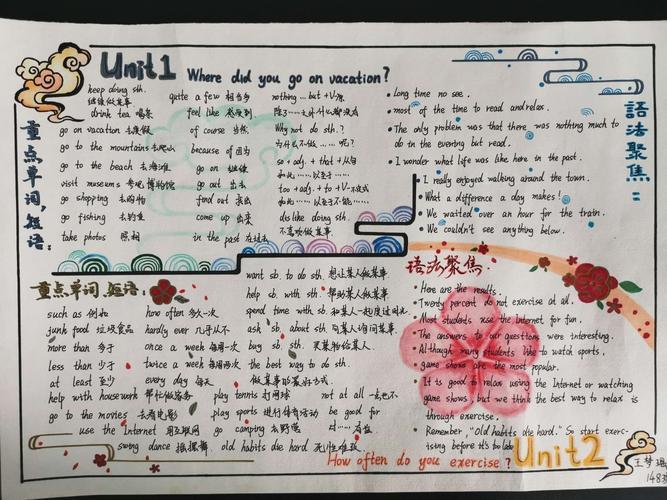 Unit1 Where did you go on vacation?
重点单词,短语:
keep doing sth.
继续做某事
drink tea 喝茶
go on vacation 去度假
go to the mountains 去爬山
go to the beach 去海滩
visit museums 参观博物馆
go shopping 去购物
go fishing 去钓鱼
take photos 照相
quite a few 相当多
feel like 感受到
of course 当然
because of 因为
go on 继续
go out 出去
find out 找出
come up 出来
in the past 在过去
nothing...but + V-原
除了...之外什么都没有
Why not do sth.?
为什么不做......呢?
so + adj. + that + 从句
如此...以至于......
too + adj. + to + V-
如此...以至于不能......
dislike doing sth.
不喜欢做某事
語法聚焦:
Long time no see.
most of the time to read and relax.
The only problem was that there was nothing much to
do in the evening but read.
I wonder what life was like here in the past.
I really enjoyed walking around the town.
What a difference a day makes!
We waited over an hour for the train.
We couldn't see anything below.
重点单词,短语:
such as 例如
junk food 垃圾食品
more than 多于
less than 少于
at least 至少
help with housework 帮忙做家务
go to the movies 去看电影
use the Internet 用互联网
swing dance 摇摆舞
how often 多久一次
hardly ever 几乎从不
once a week 每周一次
twice a week 每周两次
every day 每天
play tennis 打网球
play sports 进行体育活动
go camping 去野营
old habits die hard 积习难改
want sb. to do sth. 想让某人做某事
help sb. with sth. 帮助某人做某事
spend time with sb. 和某人一起度过时光
ask sb. about sth. 向某人询问某事
buy sb. sth. 买某物给某人
the best way to do sth.
做某事的最好方式
not at all 一点也不
be good for
对......有益
语法聚焦:
Here are the results.
Twenty percent do not exercise at all.
Most students use the Internet for fun.
The answers to our questions were interesting.
Although many students like to watch sports,
game shows are the most popular.
It is good to relax using the Internet or watching
game shows but we think the best way to relax is
through exercise.
Remember, "Old habits die hard." So start exerc-
ising before it's too late
How often do you exercise? Unit2
王梦